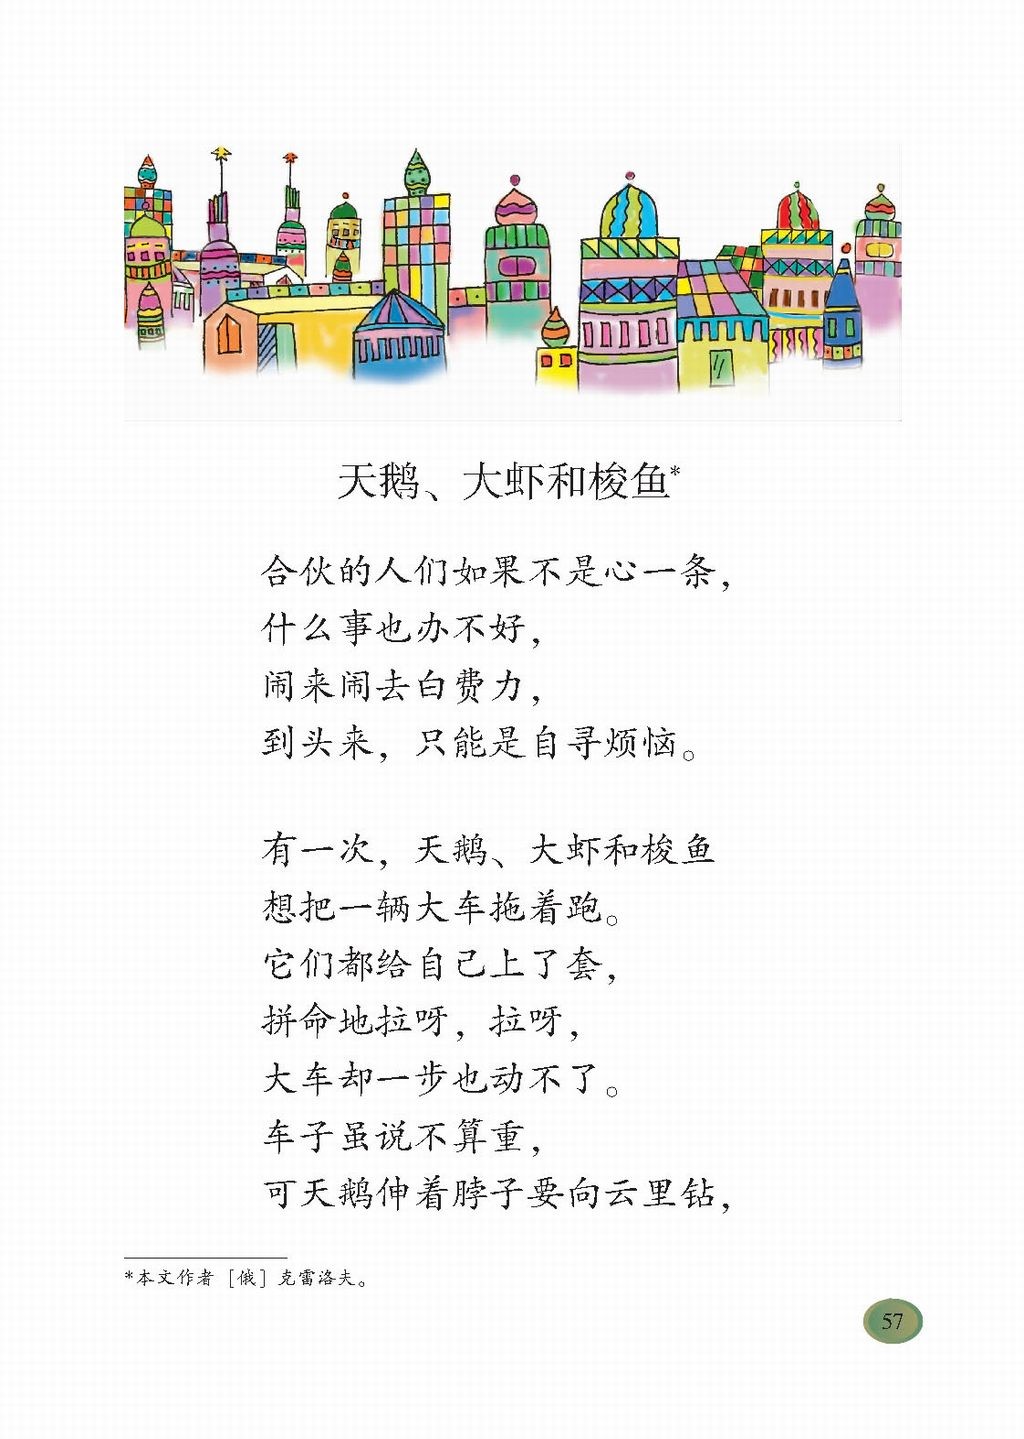 天鹅、大虾和梭鱼*
合伙的人们如果不是心一条，
什么事也办不好，
闹来闹去白费力，
到头来，只能是自寻烦恼。
有一次，天鹅、大虾和梭鱼
想把一辆大车拖着跑。
它们都给自己上了套，
拼命地拉呀，拉呀，
大车却一步也动不了。
车子虽说不算重，
可天鹅伸着脖子要向云里钻，
*本文作者［俄］克雷洛夫。
57